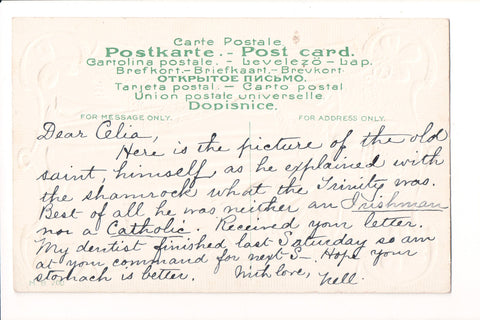 Carte Postale.
Postkarte. - Post card.
Cartolina postale. - Levelező-Lap.
Brefkort.-Briefkaart.-Brevkort.
ОТКРЫТОЕ ПИСЬМО.
Tarjeta postal. - Carto postal.
Union postale universelle.
Dopisnice.
FOR MESSAGE ONLY. FOR ADDRESS ONLY.
Dear Celia,
Here is the picture of the old
saint, himself as he explained with
the shamrock what the Trinity was.
Best of all he was neither an Irishman
nor a Catholic. Received your letter.
My dentist finished last Saturday so am
at your command for next S—. Hope your
stomach is better. With love, Nell.